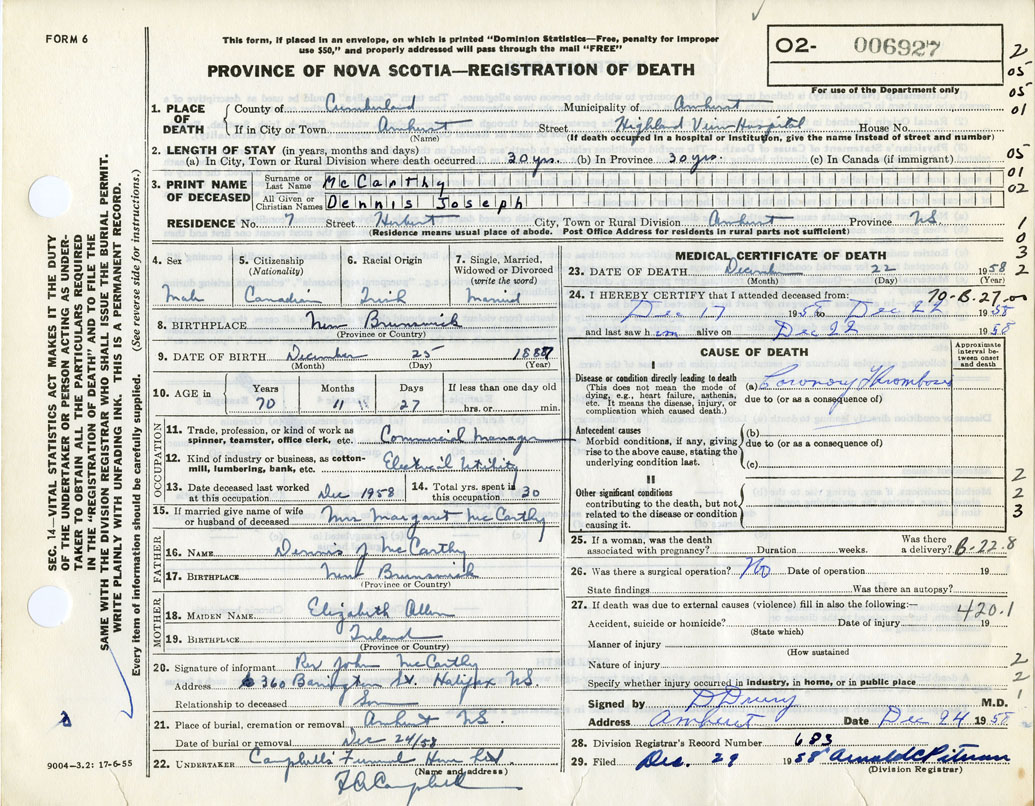 FORM 6
This form, if placed in an envelope, on which is printed "Dominion Statistics—Free, penalty for improper
use $50," and properly addressed will pass through the mail "FREE"
PROVINCE OF NOVA SCOTIA—REGISTRATION OF DEATH
O2- 006927
For use of the Department only
2
05
05
01
05
01
02
1
0
3
2
2
2
3
2
2
1
SEC. 14—VITAL STATISTICS ACT MAKES IT THE DUTY
OF THE UNDERTAKER OR PERSON ACTING AS UNDER-
TAKER TO OBTAIN ALL THE PARTICULARS REQUIRED
IN THE "REGISTRATION OF DEATH" AND TO FILE THE
SAME WITH THE DIVISION REGISTRAR WHO SHALL ISSUE THE BURIAL PERMIT.
WRITE PLAINLY WITH UNFADING INK. THIS IS A PERMANENT RECORD.
Every item of information should be carefully supplied. (See reverse side for instructions.)
1. PLACE OF DEATH
County of Cumberland Municipality of Amherst
If in City or Town Amherst Street Highland View Hospital House No.
(Name) (If death occurred in a hospital or institution, give the name instead of street and number)
2. LENGTH OF STAY (in years, months and days)
(a) In City, Town or Rural Division where death occurred 30 yrs. (b) In Province 30 yrs. (c) In Canada (if immigrant)
3. PRINT NAME OF DECEASED
Surname or Last Name McCarthy
All Given or Christian Names Dennis Joseph
RESIDENCE No. 7 Street Herbert City, Town or Rural Division Amherst Province NS
(Residence means usual place of abode. Post Office Address for residents in rural parts not sufficient)
4. Sex
Male
5. Citizenship (Nationality)
Canadian
6. Racial Origin
Irish
7. Single, Married, Widowed or Divorced (write the word)
Married
8. BIRTHPLACE New Brunswick
(Province or Country)
9. DATE OF BIRTH December 25 1887
(Month) (Day) (Year)
10. AGE in
Years Months Days If less than one day old
70 11 27 hrs. or min.
OCCUPATION
11. Trade, profession, or kind of work as spinner, teamster, office clerk, etc. Commercial Manager
12. Kind of industry or business, as cotton-mill, lumbering, bank, etc. Electrical Utility
13. Date deceased last worked at this occupation Dec 1958
14. Total yrs. spent in this occupation 30
15. If married give name of wife or husband of deceased Mrs Margaret McCarthy
FATHER
16. NAME Dennis J McCarthy
17. BIRTHPLACE New Brunswick
(Province or Country)
MOTHER
18. MAIDEN NAME Elizabeth Allen
19. BIRTHPLACE Ireland
(Province or Country)
20. Signature of informant Rev John McCarthy
Address 360 Barrington St. Halifax NS.
Relationship to deceased Son
21. Place of burial, cremation or removal Amherst NS.
Date of burial or removal Dec 24/58
22. UNDERTAKER Campbell's Funeral Home Ltd
(Name and address)
F A Campbell
9004—3.2: 17-6-55
MEDICAL CERTIFICATE OF DEATH
23. DATE OF DEATH December 22 1958
(Month) (Day) (Year)
24. I HEREBY CERTIFY that I attended deceased from: 70-B.27
Dec 17 1958 to Dec 22 1958
and last saw him alive on Dec 22 1958
CAUSE OF DEATH
Approximate interval between onset and death
I
Disease or condition directly leading to death
(This does not mean the mode of dying, e.g., heart failure, asthenia, etc. It means the disease, injury, or complication which caused death.)
(a) Coronary Thrombosis
due to (or as a consequence of)
Antecedent causes
Morbid conditions, if any, giving rise to the above cause, stating the underlying condition last.
(b)
due to (or as a consequence of)
(c)
II
Other significant conditions
contributing to the death, but not related to the disease or condition causing it.
25. If a woman, was the death associated with pregnancy? Duration weeks. Was there a delivery? B-22.8
26. Was there a surgical operation? No Date of operation 19
State findings Was there an autopsy?
27. If death was due to external causes (violence) fill in also the following:— 420.1
Accident, suicide or homicide? Date of injury 19
(State which)
Manner of injury
(How sustained
Nature of injury
Specify whether injury occurred in industry, in home, or in public place
Signed by D Drury M.D.
Address Amherst Date Dec 24 1958
28. Division Registrar's Record Number 683
29. Filed Dec. 29 1958 Arnold C Pitman
(Division Registrar)